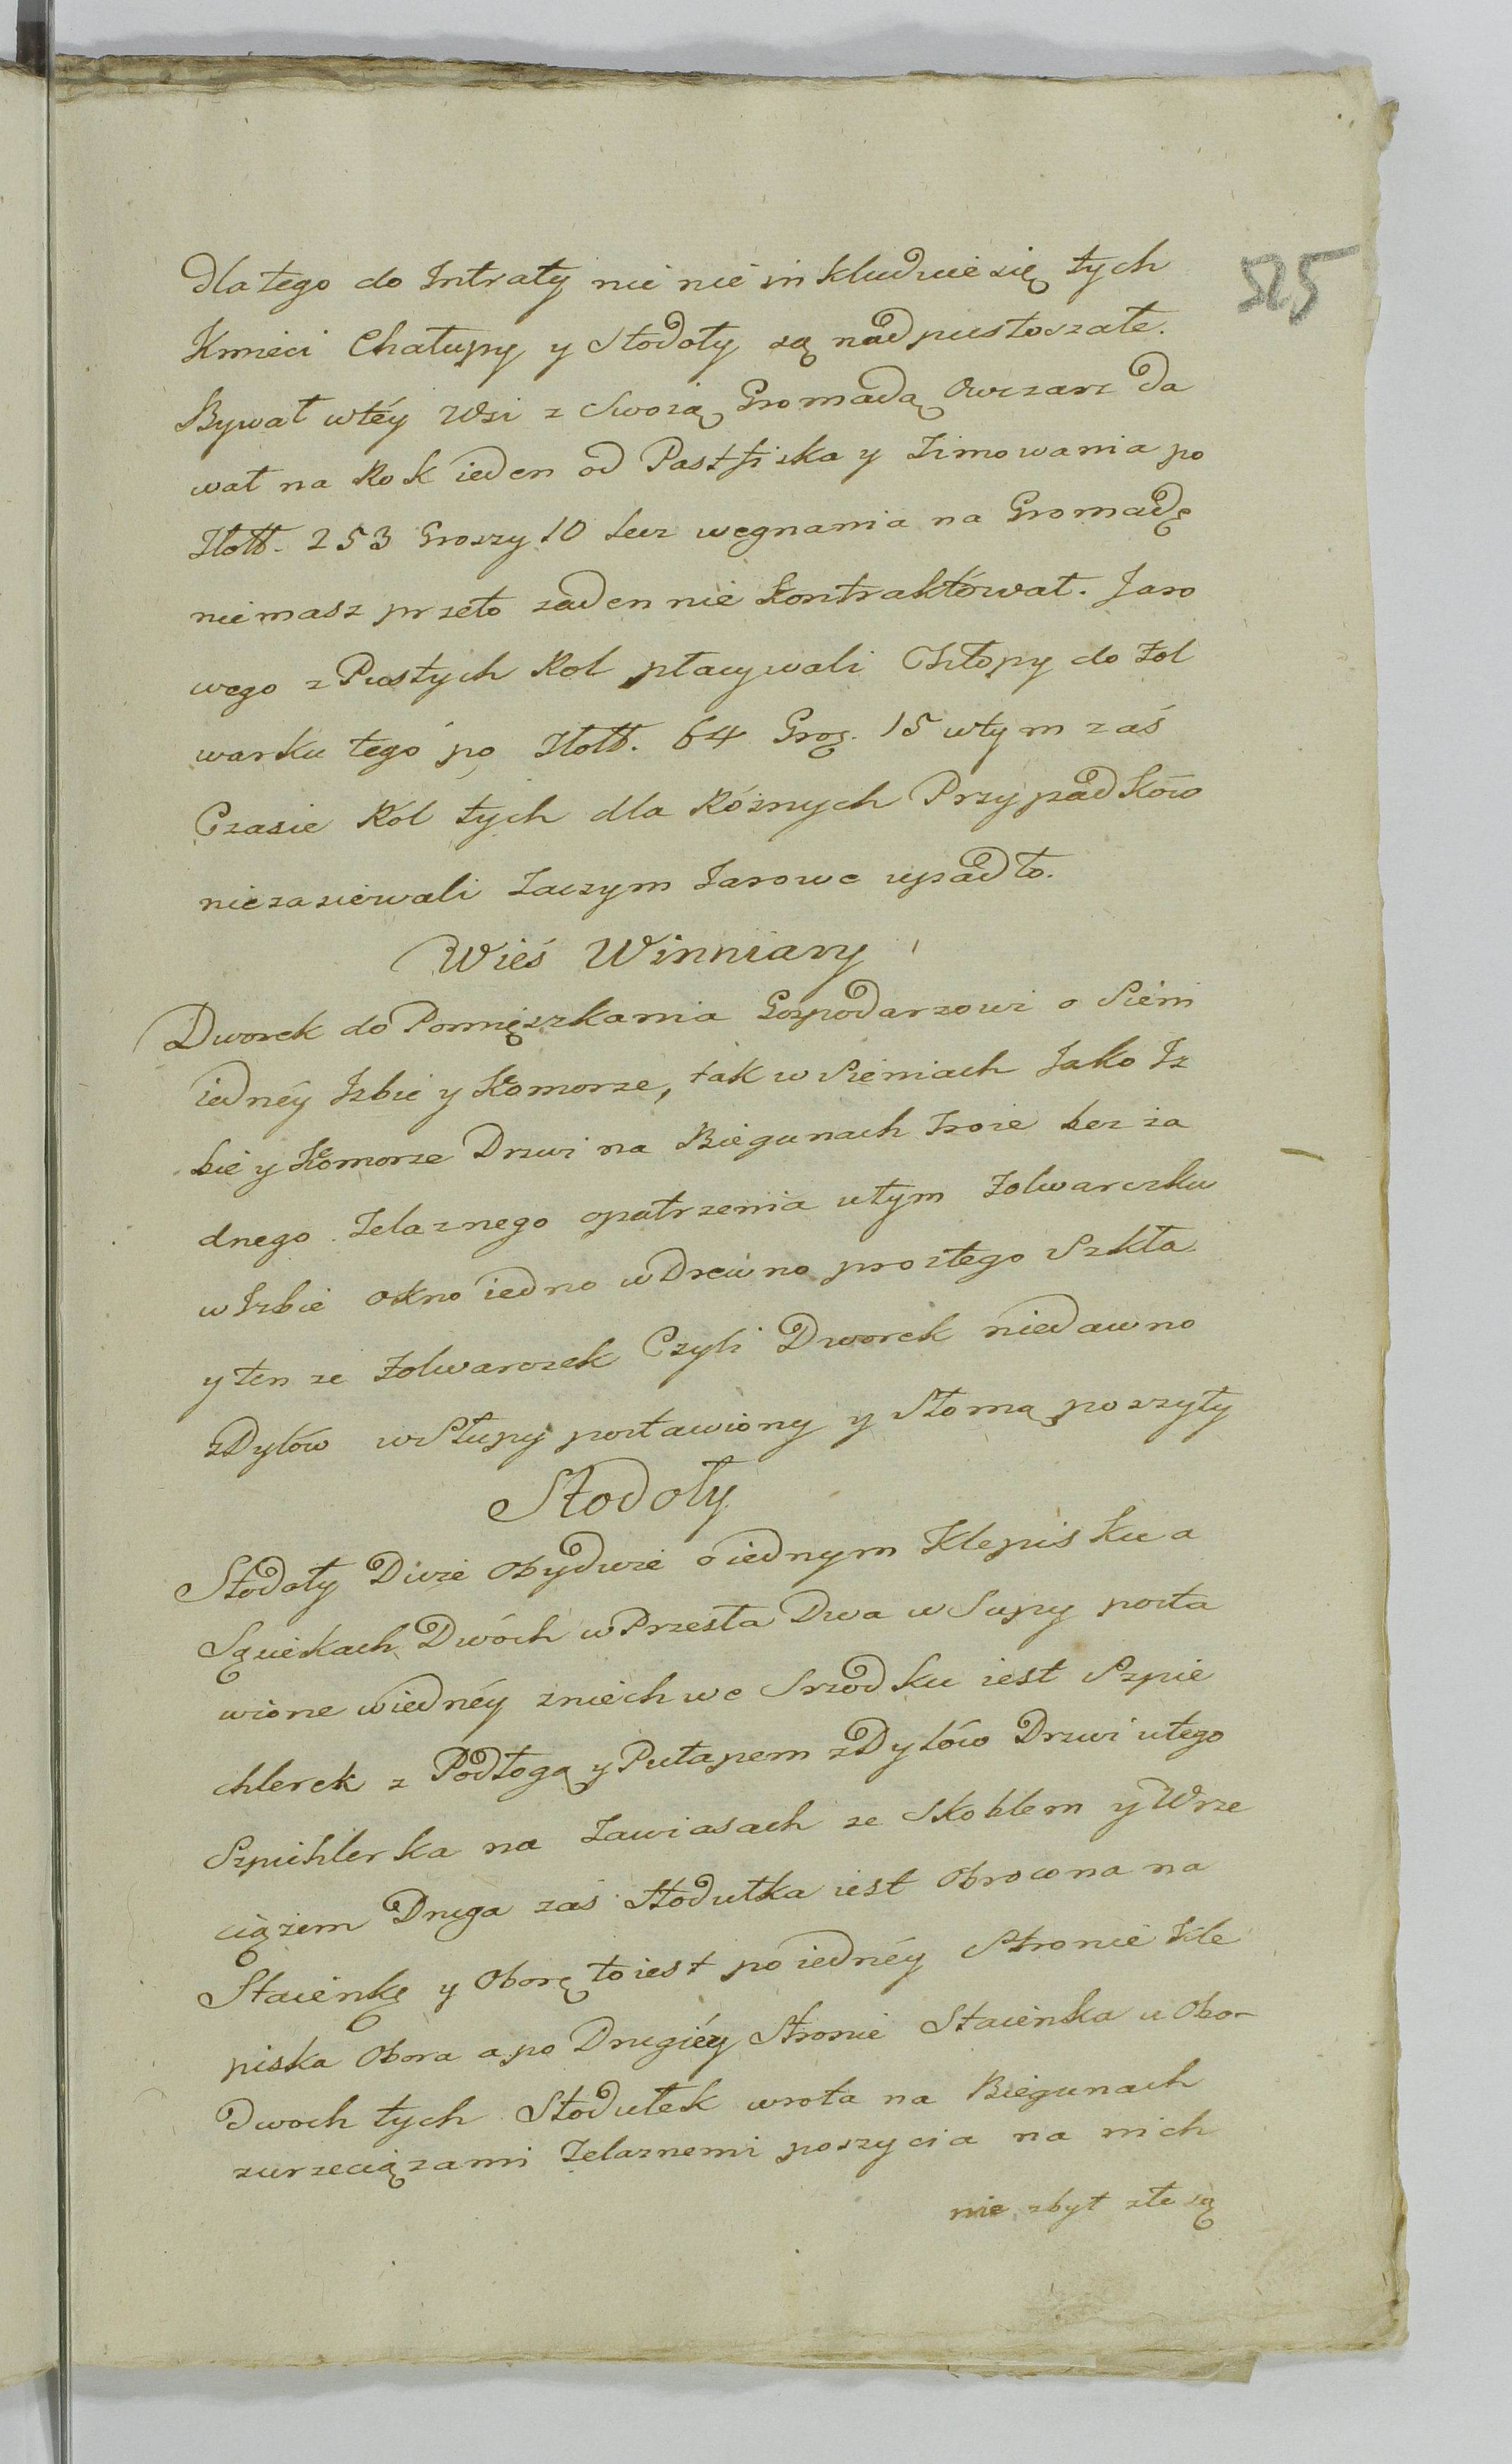 525
Dla tego do Intraty nie nie inkluduie się tych
Kmieci Chałupy y Stodoły są nadpustoszałe.
Bywał wtéy Wsi z Swoią Gromadą Owczarz da
wał na Rok ieden od Pastfiska y Zimowania po
Złott. 253 Groszy 10 lecz wegnania na Gromadę
niemasz przeto zaden nie kontraktował. Jaro
wego z Pustych Rol płacywali Chłopy do Fol
warku tego po Złott. 64 Grosz. 15 wtym zaś
Czasie Ról tych dla Róznych Przypadków
niezasiewali Zaczym Jarowe upadło.
Wieś Winniary
Dworek do Pomięszkania Gospodarzowi o Sieni
iednéy Izbie y Komorze, tak w Sieniach Jako Iz
bie y Komorze Drzwi na Biegunach Troie bez ża
dnego Zelaznego opatrzenia utym Folwarczku
w Izbie okno iedno w Drewno prostego Szkła
y ten ze Folwarczek Czyli Dworek niedawno
z Dylów w Słupy postawiony y Słomą poszyty
Stodoły
Stodoły Dwie obydwie o iednym Klepisku a
Sąsiekach Dwóch w Przesła Dwa w Supy posta
wione wiednéy zniech we Srzodku iest Szpie
chlerek z Podłogą y Pułapem z Dylów Drzwi utego
Szpichlerka na Zawiasach ze Skoblem y Wrze
ciążem Druga zaś Stodułka iest obrocona na
Staienkę y Oborę toiest po iednéy Stronie Kle
piska Obora a po Drugiéy Stronie Staienka u Obo-
dwoch tych Stodułek wrota na Biegunach
zwrzeciązami Zelaznemi poszycia na nich
nie zbyt złe są